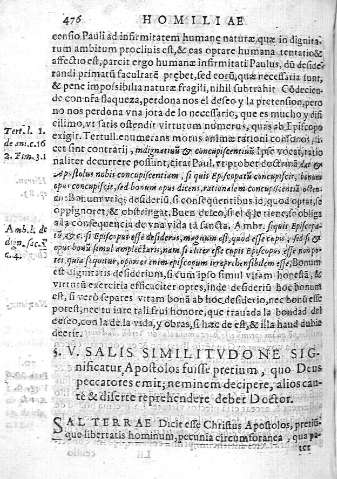 476 HOMILIAE
censio Pauli ad infirmitatem humanę naturę, quæ in dignita
tum ambitum procliuis est, & eas optare humana tentatio &
affectio est, parcit ergo humanæ infirmitati Paulus, dũ deside
randi primatũ facultatẽ prębet, sed eorũ, quæ necessaria sunt,
& pene impossibilia naturæ fragili, nihil subtrahit. Cõdecien
de con nr̃a flaqueza, perdona nos el deseo y la pretension, pero
no nos perdona vna jota de lo necessario, que es mucho y
cilimo, vt satis ostendit virtutum numerus, quas ab Episcopo
exigit. Tertull. enumerans motus animæ rationi consonos,
cet sint contrarij, indignatiuũ & concupiscentiuũ Ipse vocat, ratio
naliter decurrere possunt, citat Paul.
Apostolus nobis concupiscentiam, si quis Episcopatũ concupiscit, bonum
opus concupiscit, sed bonum opus dicens, rationalem concupiscentiã osten
dit. Bonum vtiq; desideriũ, si consequentibus id, quod optat, se
oppignoret, & obstringat. Buen deseo, si el q̃ le tiene, se obliga
a la consequencia de vna vida tã sancta. Ambr. siquis Episcopa
tũ &c. si Episcopus esse desideras, magnum est, quod esse cupis, sed si &
opus bonũ simul amplectaris, nam si aliter esse cupis Episcopus esse non po
teris quia sequitur, oportet enim episcopum irreprehensibilem esse. Bonum
est dignitatis desiderium, si cum ipso simul vitam honestã, &
virtutũ exercitia efficaciter optes, inde desideriũ hoc bonum
est, si verò separes vitam bonã ab hoc desiderio, nec bonũ esse
potest, nec tu iure tali frui honore, que trauada la bondad del
deseo, con la de la vida, y obras, si hæc de est, & illa haud dubiè
deerit.
Tert. l. 1.
de ani. c. 16
2. Tim. 3. 1
Amb. l. de
dign. sac.
c. 4.
§. V. SALIS SIMILITVDONE SIG-
nificatur Apostolos fuisse pretium, quo Deus
peccatores emit; neminem decipere, alios cau-
tè & disertè reprehendere debet Doctor.
SAL TERRAE Dicit esse Christus Apostolos, pretiũ-
que libertatis hominum, pecunia circumforanea, qua pa-
ter